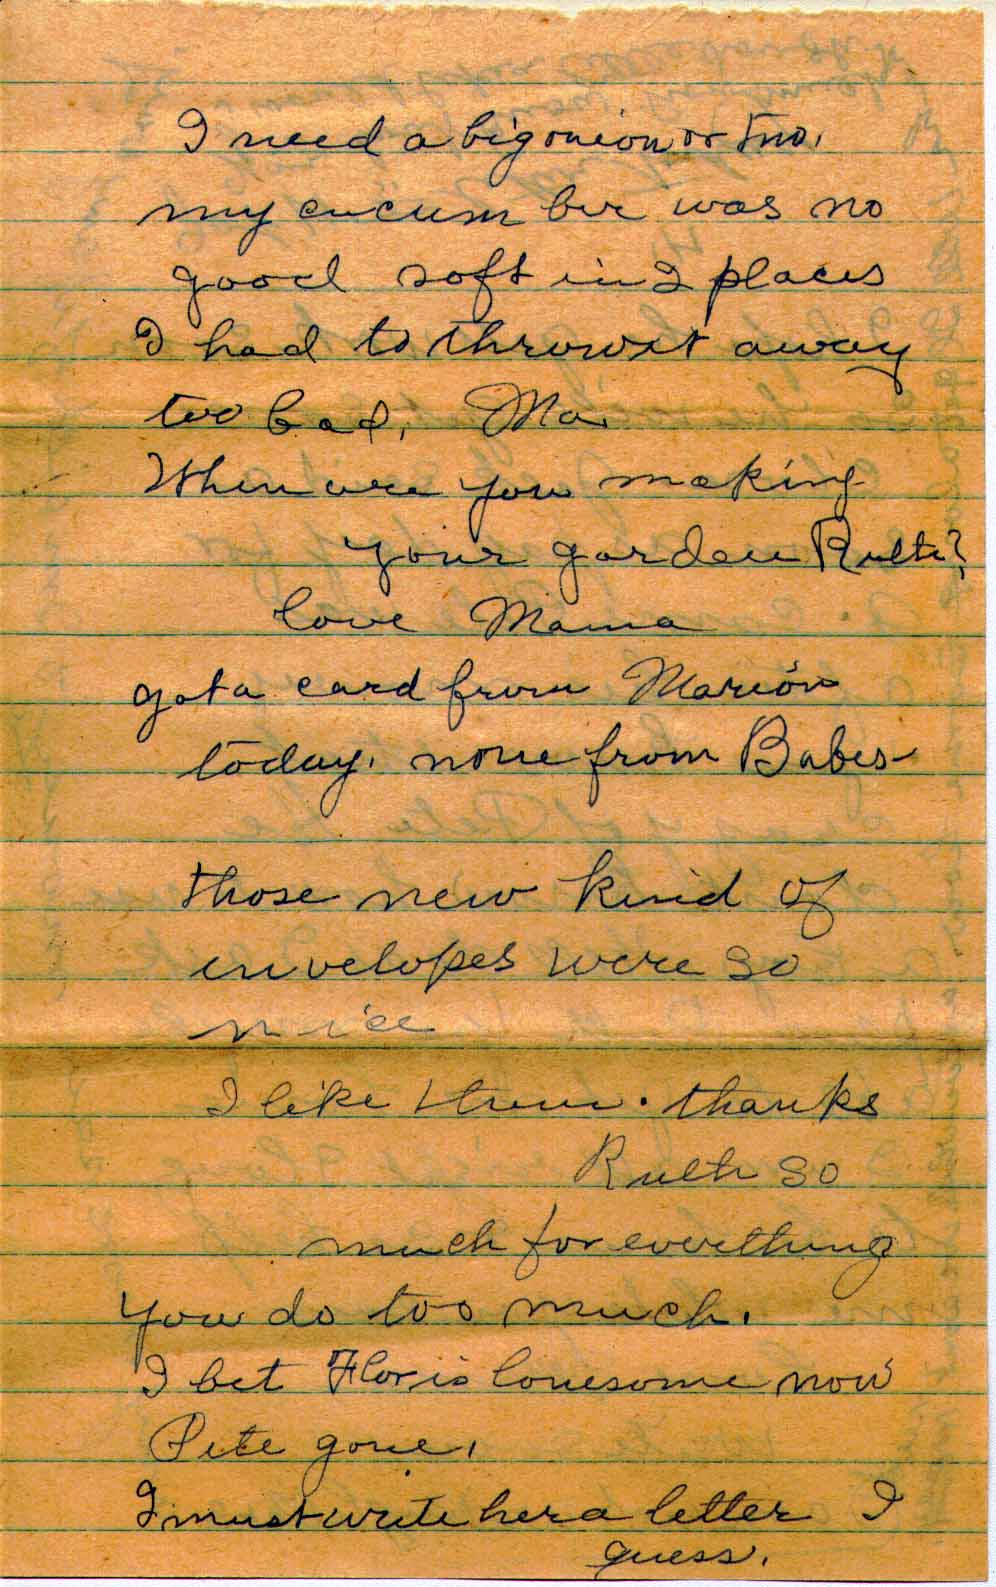 I need a big onion or two.
my cucum ber was no
good soft in 2 places
I had to throw it away
too bad, Ma.
When are you making
your garden Ruth?
love Mama
got a card from Marion
today. none from Babes
those new kind of
envelopes were so
nice
I like them. thanks
Ruth so
much for everthing
you do too much.
I bet Flor is lonesome now
Pete gone.
I must write her a letter I
guess.